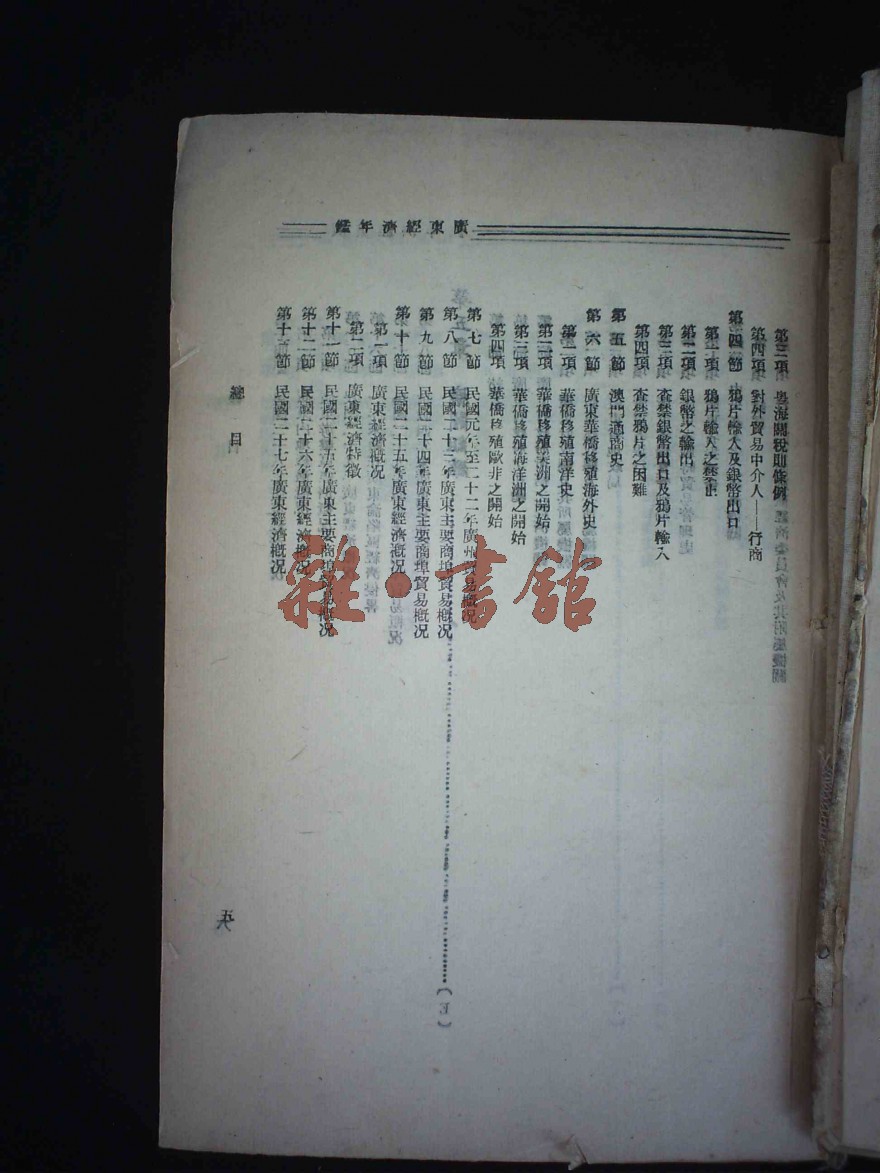 廣東經濟年鑑
第三項 粵海關稅則條例
第四項 對外貿易中介人——行商
第四節 鴉片輸入及銀幣出口
第一項 鴉片輸入之禁止
第二項 銀幣之輸出
第三項 查禁銀幣出口及鴉片輸入
第四項 查禁鴉片之困難
第五節 澳門通商史
第六節 廣東華僑移殖海外史
第一項 華僑移殖南洋史
第二項 華僑移殖美洲之開始
第三項 華僑移殖海洋洲之開始
第四項 華僑移殖歐非之開始
第七節 民國元年至二十二年廣州貿易概況
第八節 民國二十三年廣東主要商埠貿易概況
第九節 民國二十四年廣東主要商埠貿易概況
第十節 民國二十五年廣東經濟概況
第一項 廣東經濟概況
第二項 廣東經濟特徵
第十一節 民國二十五年廣東主要商埠貿易概況
第十二節 民國二十六年廣東經濟概況
第十三節 民國二十七年廣東經濟概況
總目
雜·書館